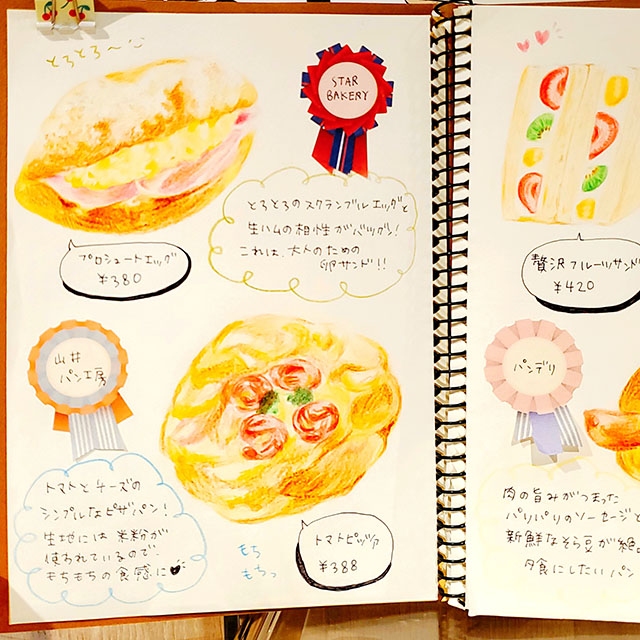 とろとろ〜
STAR
BAKERY
とろとろのスクランブルエッグと
生ハムの相性がバツグン!
これは、大人のための
卵サンド!!
プロシュートエッグ
¥380
山井
パン工房
トマトとチーズの
シンプルなピザパン!
生地には米粉が
使われているので、
もちもちの食感に
もち
もちっ
トマトピッツァ
¥388
贅沢フルーツサンド
¥420
パンデリ
肉の旨みがつまった
パリパリのソーセージと
新鮮なそら豆が絶
夕食にしたいパン